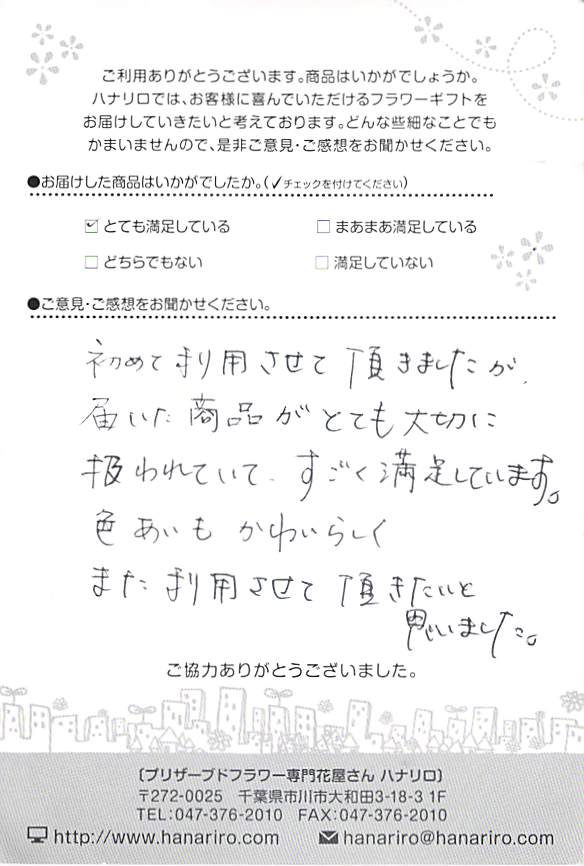 ご利用ありがとうございます。商品はいかがでしょうか。
ハナリロでは、お客様に喜んでいただけるフラワーギフトを
お届けしていきたいと考えております。どんな些細なことでも
かまいませんので、是非ご意見・ご感想をお聞かせください。
●お届けした商品はいかがでしたか。(✓チェックを付けてください)
☑とても満足している □まあまあ満足している
□どちらでもない □満足していない
●ご意見・ご感想をお聞かせください。
初めて利用させて頂きましたが、
届いた商品がとても大切に
扱われていて、すごく満足しています。
色あいもかわいらしく
また利用させて頂きたいと
思いました。
ご協力ありがとうございました。
〔プリザーブドフラワー専門花屋さん ハナリロ〕
〒272-0025 千葉県市川市大和田3-18-3 1F
TEL:047-376-2010 FAX:047-376-2010
http://www.hanariro.com hanariro@hanariro.com